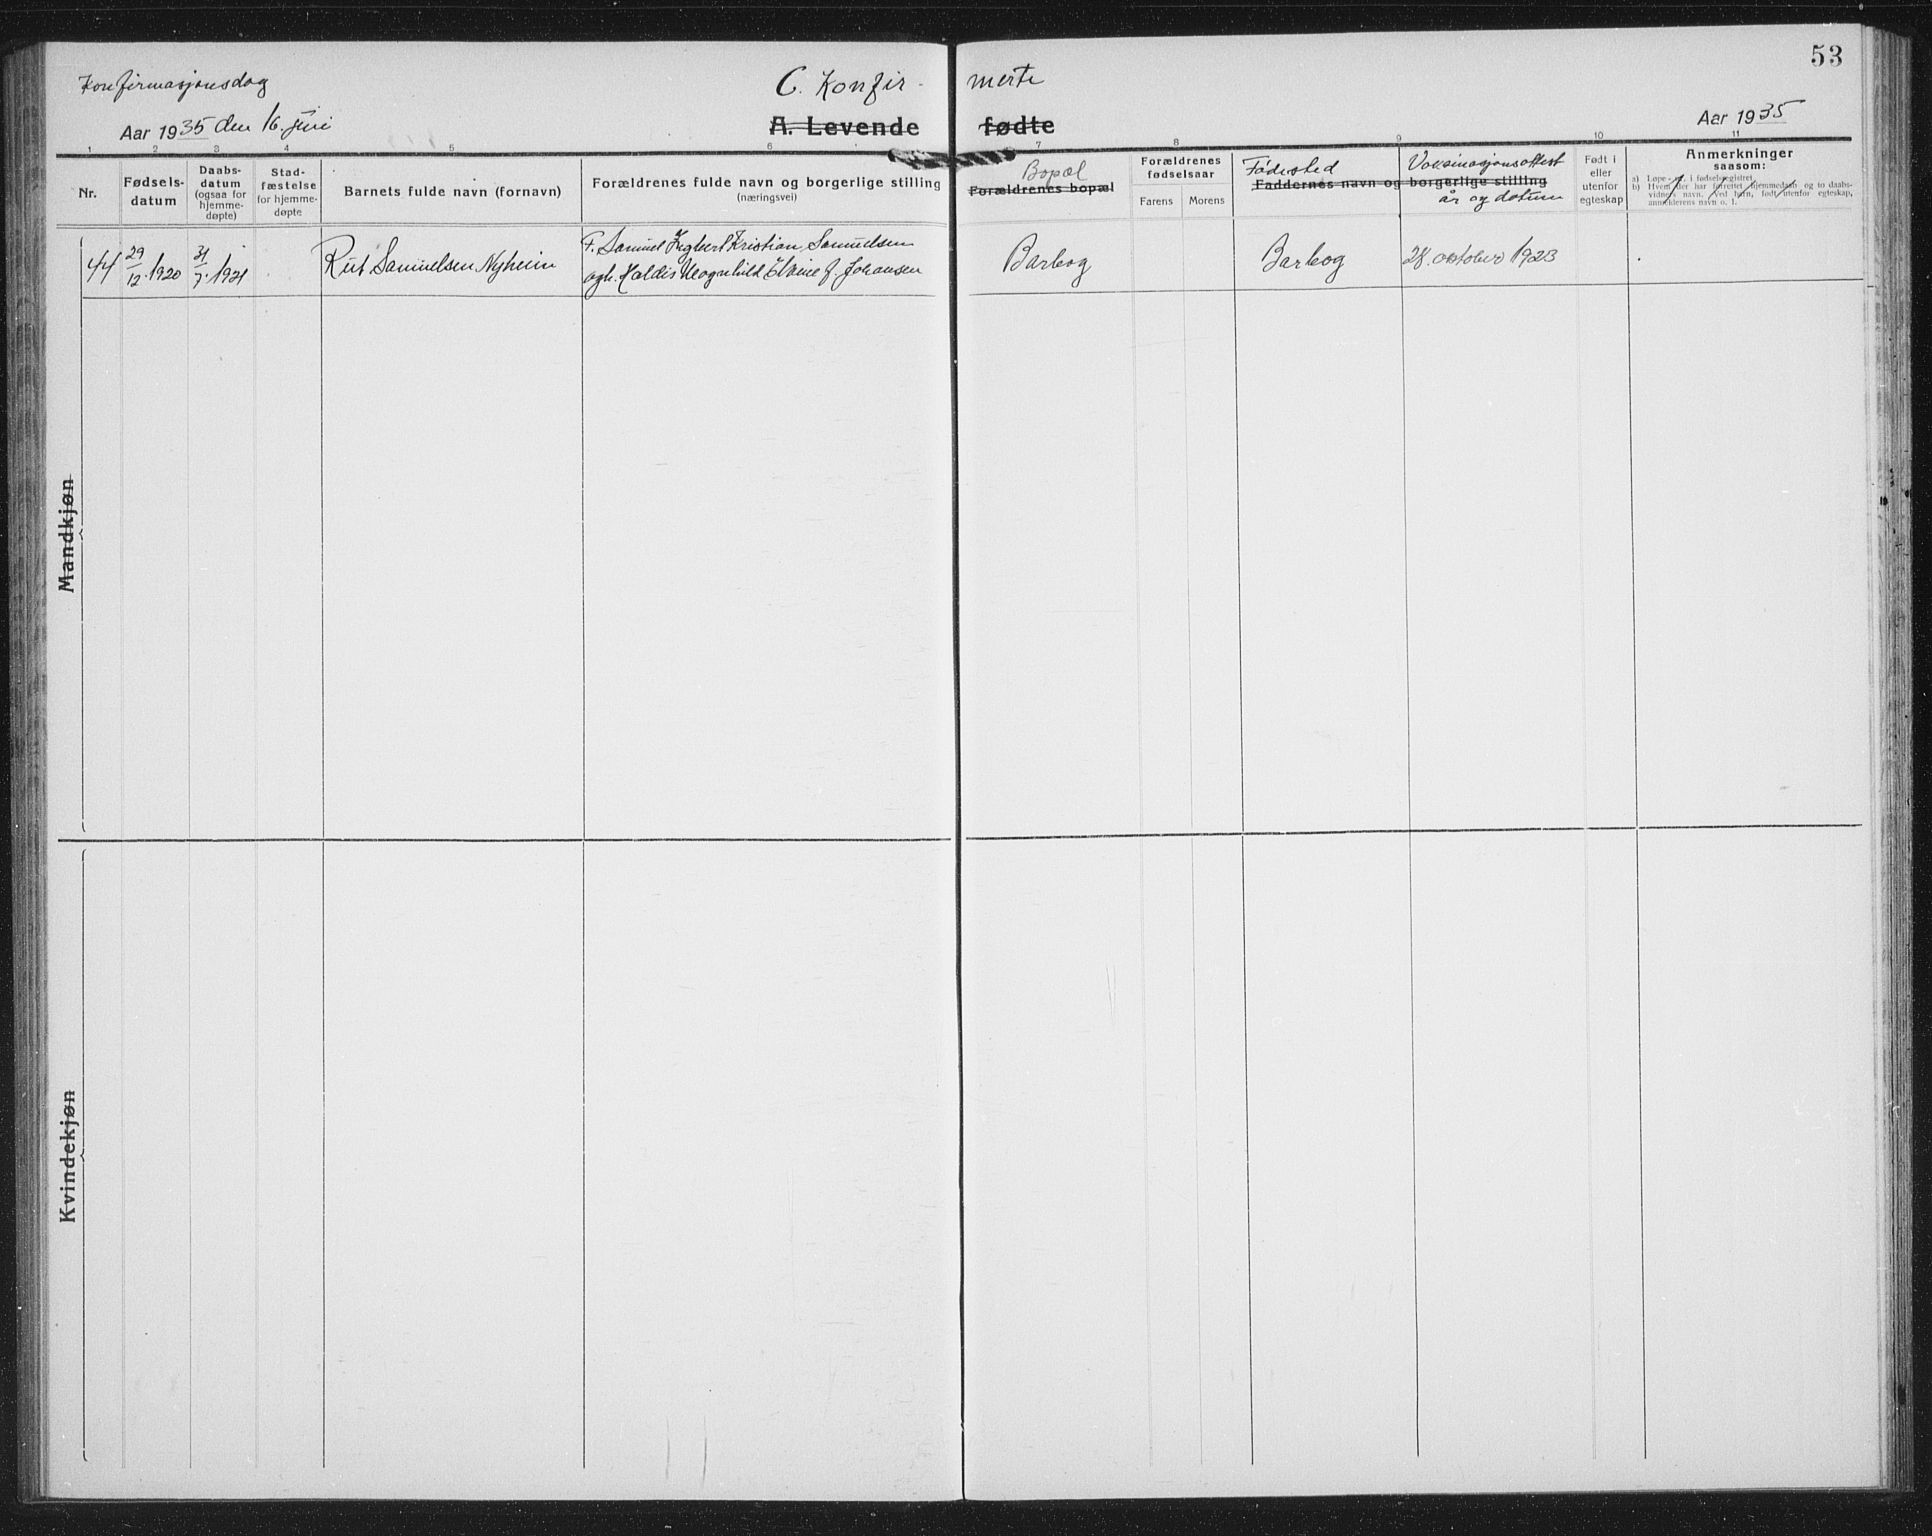 53
Konfirmasjonsdag
C. Konfir - merte
Aar 1935 den 16. juni
A. Levende fødte
Aar 1935
1 2 3 4 5 6 7 8 9 10 11
Nr.
Fødsels-
datum
Daabs-
datum
(ogsaa for
hjemme-
døpte)
Stad-
fæstelse
for hjemme-
døpte
Barnets fulde navn (fornavn)
Forældrenes fulde navn og borgerlige stilling
(næringsvei)
Bopæl
Forældrenes bopæl
Forældrenes
fødselsaar
Farens Morens
Fødested
Faddernes navn og borgerlige stilling
Vaksinasjonsattest
år og datum
Født i
eller
utenfor
egteskap
Anmerkninger
saasom:
a) Løpe-nr. i fødselsregistret.
b) Hvem der har forrettet hjemmedaab og to daabs-
vidners navn. Ved barn, født utenfor egteskap,
anmelderens navn o. l.
44
29/12 1920
31/7 1921
Rut Samuelsen Nyheim
F. Samuel Ingbert Kristian Samuelsen
ogh. Haldis Magnhild Elvine f. Johansen
Barbog
Barbog
28. oktober 1923
Mandkjøn
Kvindekjøn